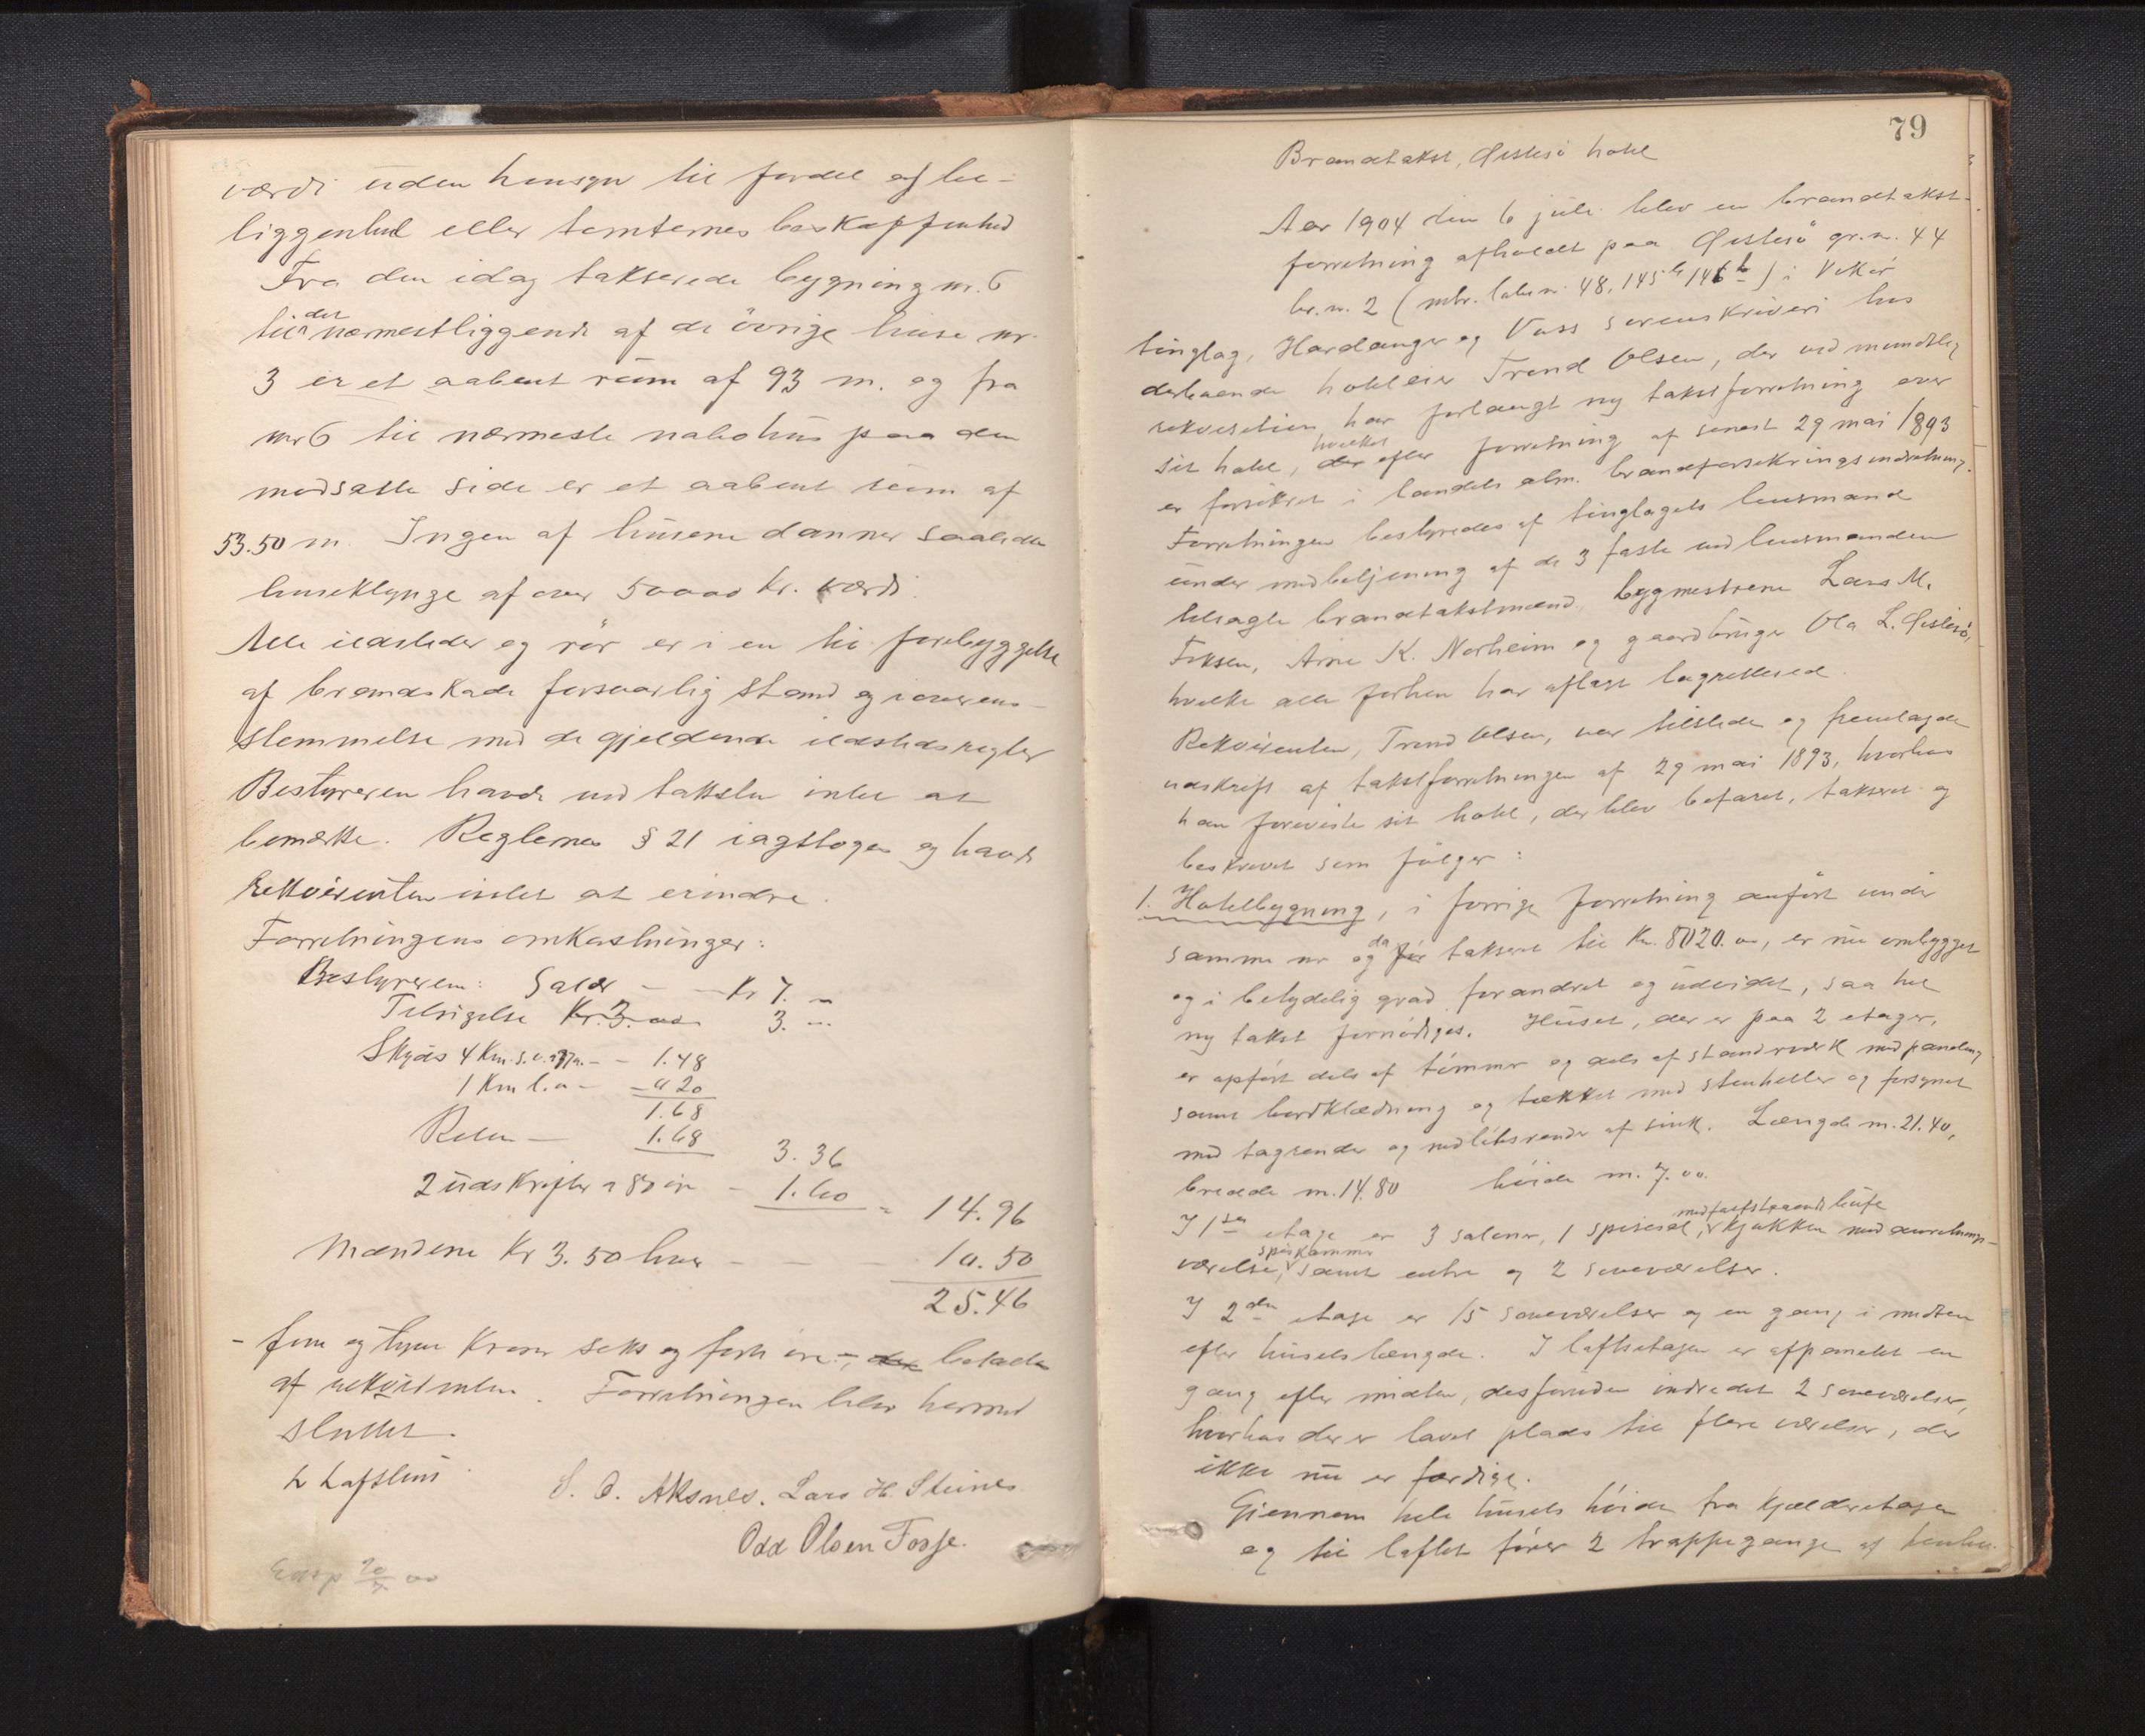 værdi uden hensyn til fordel af be-
liggenhed eller tomternes beskaffenhed
Fra den idag takserede bygning nr. 6
til det nærmestliggende af de øvrige huse nr.
3 er et aabent rum af 93 m. og fra
nr 6 til nærmeste nabohus paa den
modsatte side er et aabent rum af
53.50 m. Ingen af husene danner saaledes
huseklynge af over 50000 kr. værdi.
Alle ildsteder og rør er i en til forebyggelse
af brandskade forsvarlig stand og i overens-
stemmelse med de gjeldende ildstedsregler
Bestyreren havde ved taksten intet at
bemærke. Reglernes § 21 iagttoges og havde
rekvirenten intet at erindre.
Forretningens omkostninger:
Bestyreren: Salær - - Kr 7. -
Tilsigelse Kr. 3. 00 3. -
Skyds 4 Km. - - 1.48
1 Km - - 0 20
1.68
Retur - 1.68 3. 36
2 udskrifter a 80 øre - 1.60 = 14.96
Mændene Kr 3.50 hver - - - 10.50
25.46
- fem og tyve Kroner seks og førti øre -, der betales
af rekvirenten. Forretningen blev hermed
sluttet.
L Lofthus
S. O. Aksnes. Lars H. Steines
Odd Olsen Fosse.
79
Brandtakst, Østesø hotel
Aar 1904 den 6 juli blev en brandtakst-
forretning afholdt paa Østesø gr.n. 44
br.n. 2 (mtr. løbenr. 48, 145 b 146 b) i Vikør
tinglag, Hardanger og Voss sorenskriveri hos
derboende hoteleier Trond Olsen, der ved mundtlig
rekvisition har forlangt ny takstforretning over
sit hotel, der hvilket efter forretning af senest 29 mai 1893
er forsikret i landets alm. brandforsikringsindretning.
Forretningen bestyredes af tinglagets lensmand
under medbetjening af de 3 faste ved lensmanden
tilsagte brandtakstmænd, bygmestrene Lars M.
Foksen, Arne K. Norheim og gaardbruger Ola L. Østesø,
hvilke alle forhen har aflagt lagretteed.
Rekvirenten, Trond Olsen, var tilstede og fremlagde
udskrift af takstforretningen af 29 mai 1893, hvorhos
han foreviste sit hotel, der blev befaret, takseret og
beskrevet som følger:
1. Hotelbygning, i forrige forretning anført under
samme nr og da før takseret til Kr. 8020.00, er nu ombygget
og i betydelig grad forandret og udvidet, saa hel
ny takst fornødiges. Huset, der er paa 2 etager,
er opført dels af tømmer og dels af standværk med paneling
samt bordklædning og tækket med stenheller og forsynet
med tagrender og nedløbsrender af sink. Længde m. 21.40,
bredde m. 14.80 høide m. 7.00.
I 1ste etage er 3 saloner, 1 spisesal, kjøkken med anretnings-
værelse, spiskammer samt entre og 2 soveværelser.
I 2den etage er 15 soveværelser og en gang i midten
efter husets længde. I loftsetagen er afpanelet en
gang efter midten, desforuden indredet 2 soveværelser,
hvorhos der er lavet plads til flere værelser, der
ikke nu er færdige.
Gjennem hele husets høide fra kjælderetagen
og til loftet fører 2 trappegange af